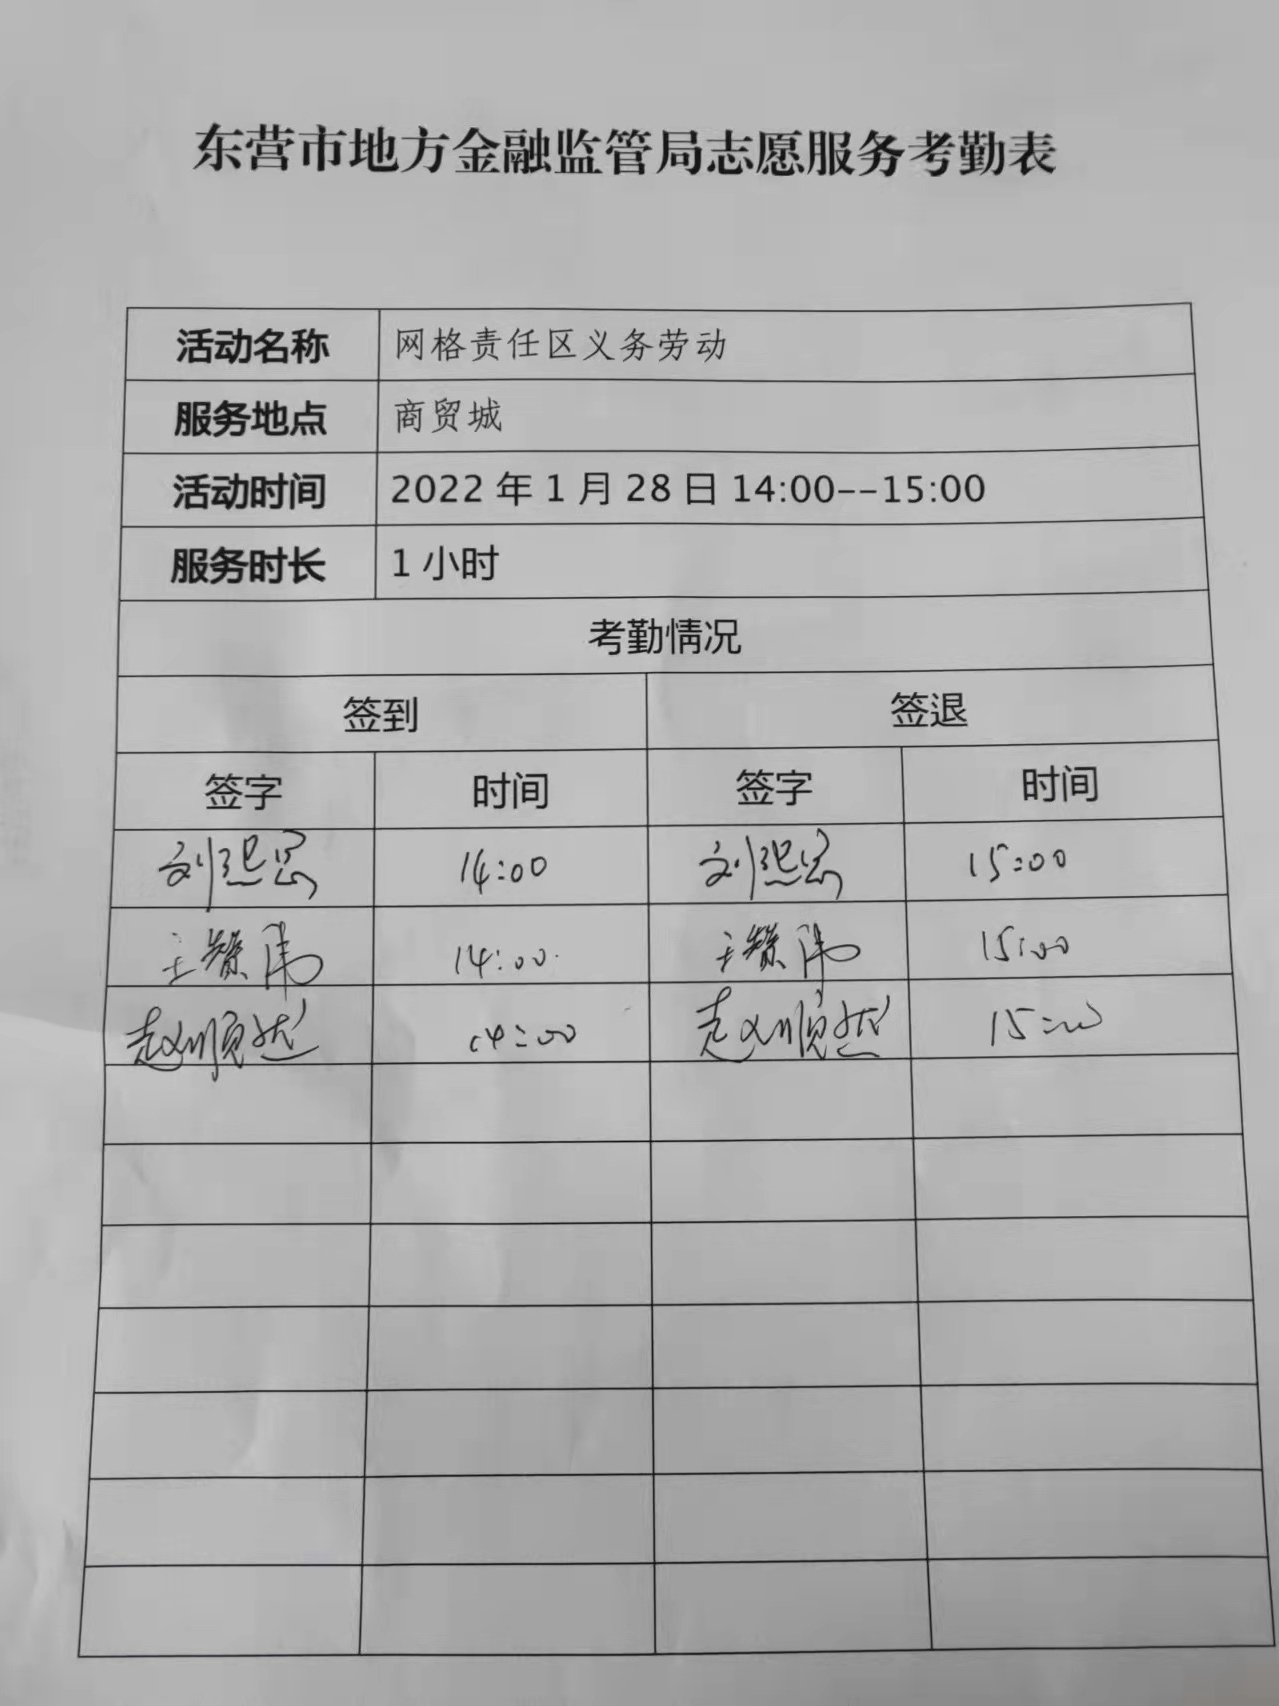 东营市地方金融监管局志愿服务考勤表
活动名称 网格责任区义务劳动
服务地点 商贸城
活动时间 2022年1月28日14:00--15:00
服务时长 1小时
考勤情况
签到 签退
签字 时间 签字 时间
刘 14:00 刘 15:00
王 伟 14:00 王 伟 15:00
赵顺然 14:00 赵顺然 15:00